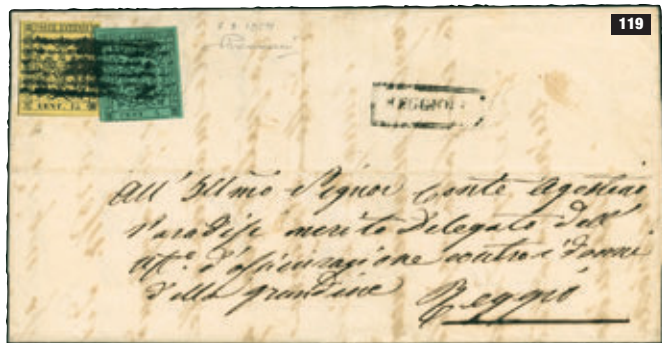 119
CENT. 15
CENT.
REGGIOLO
All' Illmo Signor Conte Agostino
Paradisi merito Delegato dell'
d'assicurazione contro i danni
della grandine Reggio